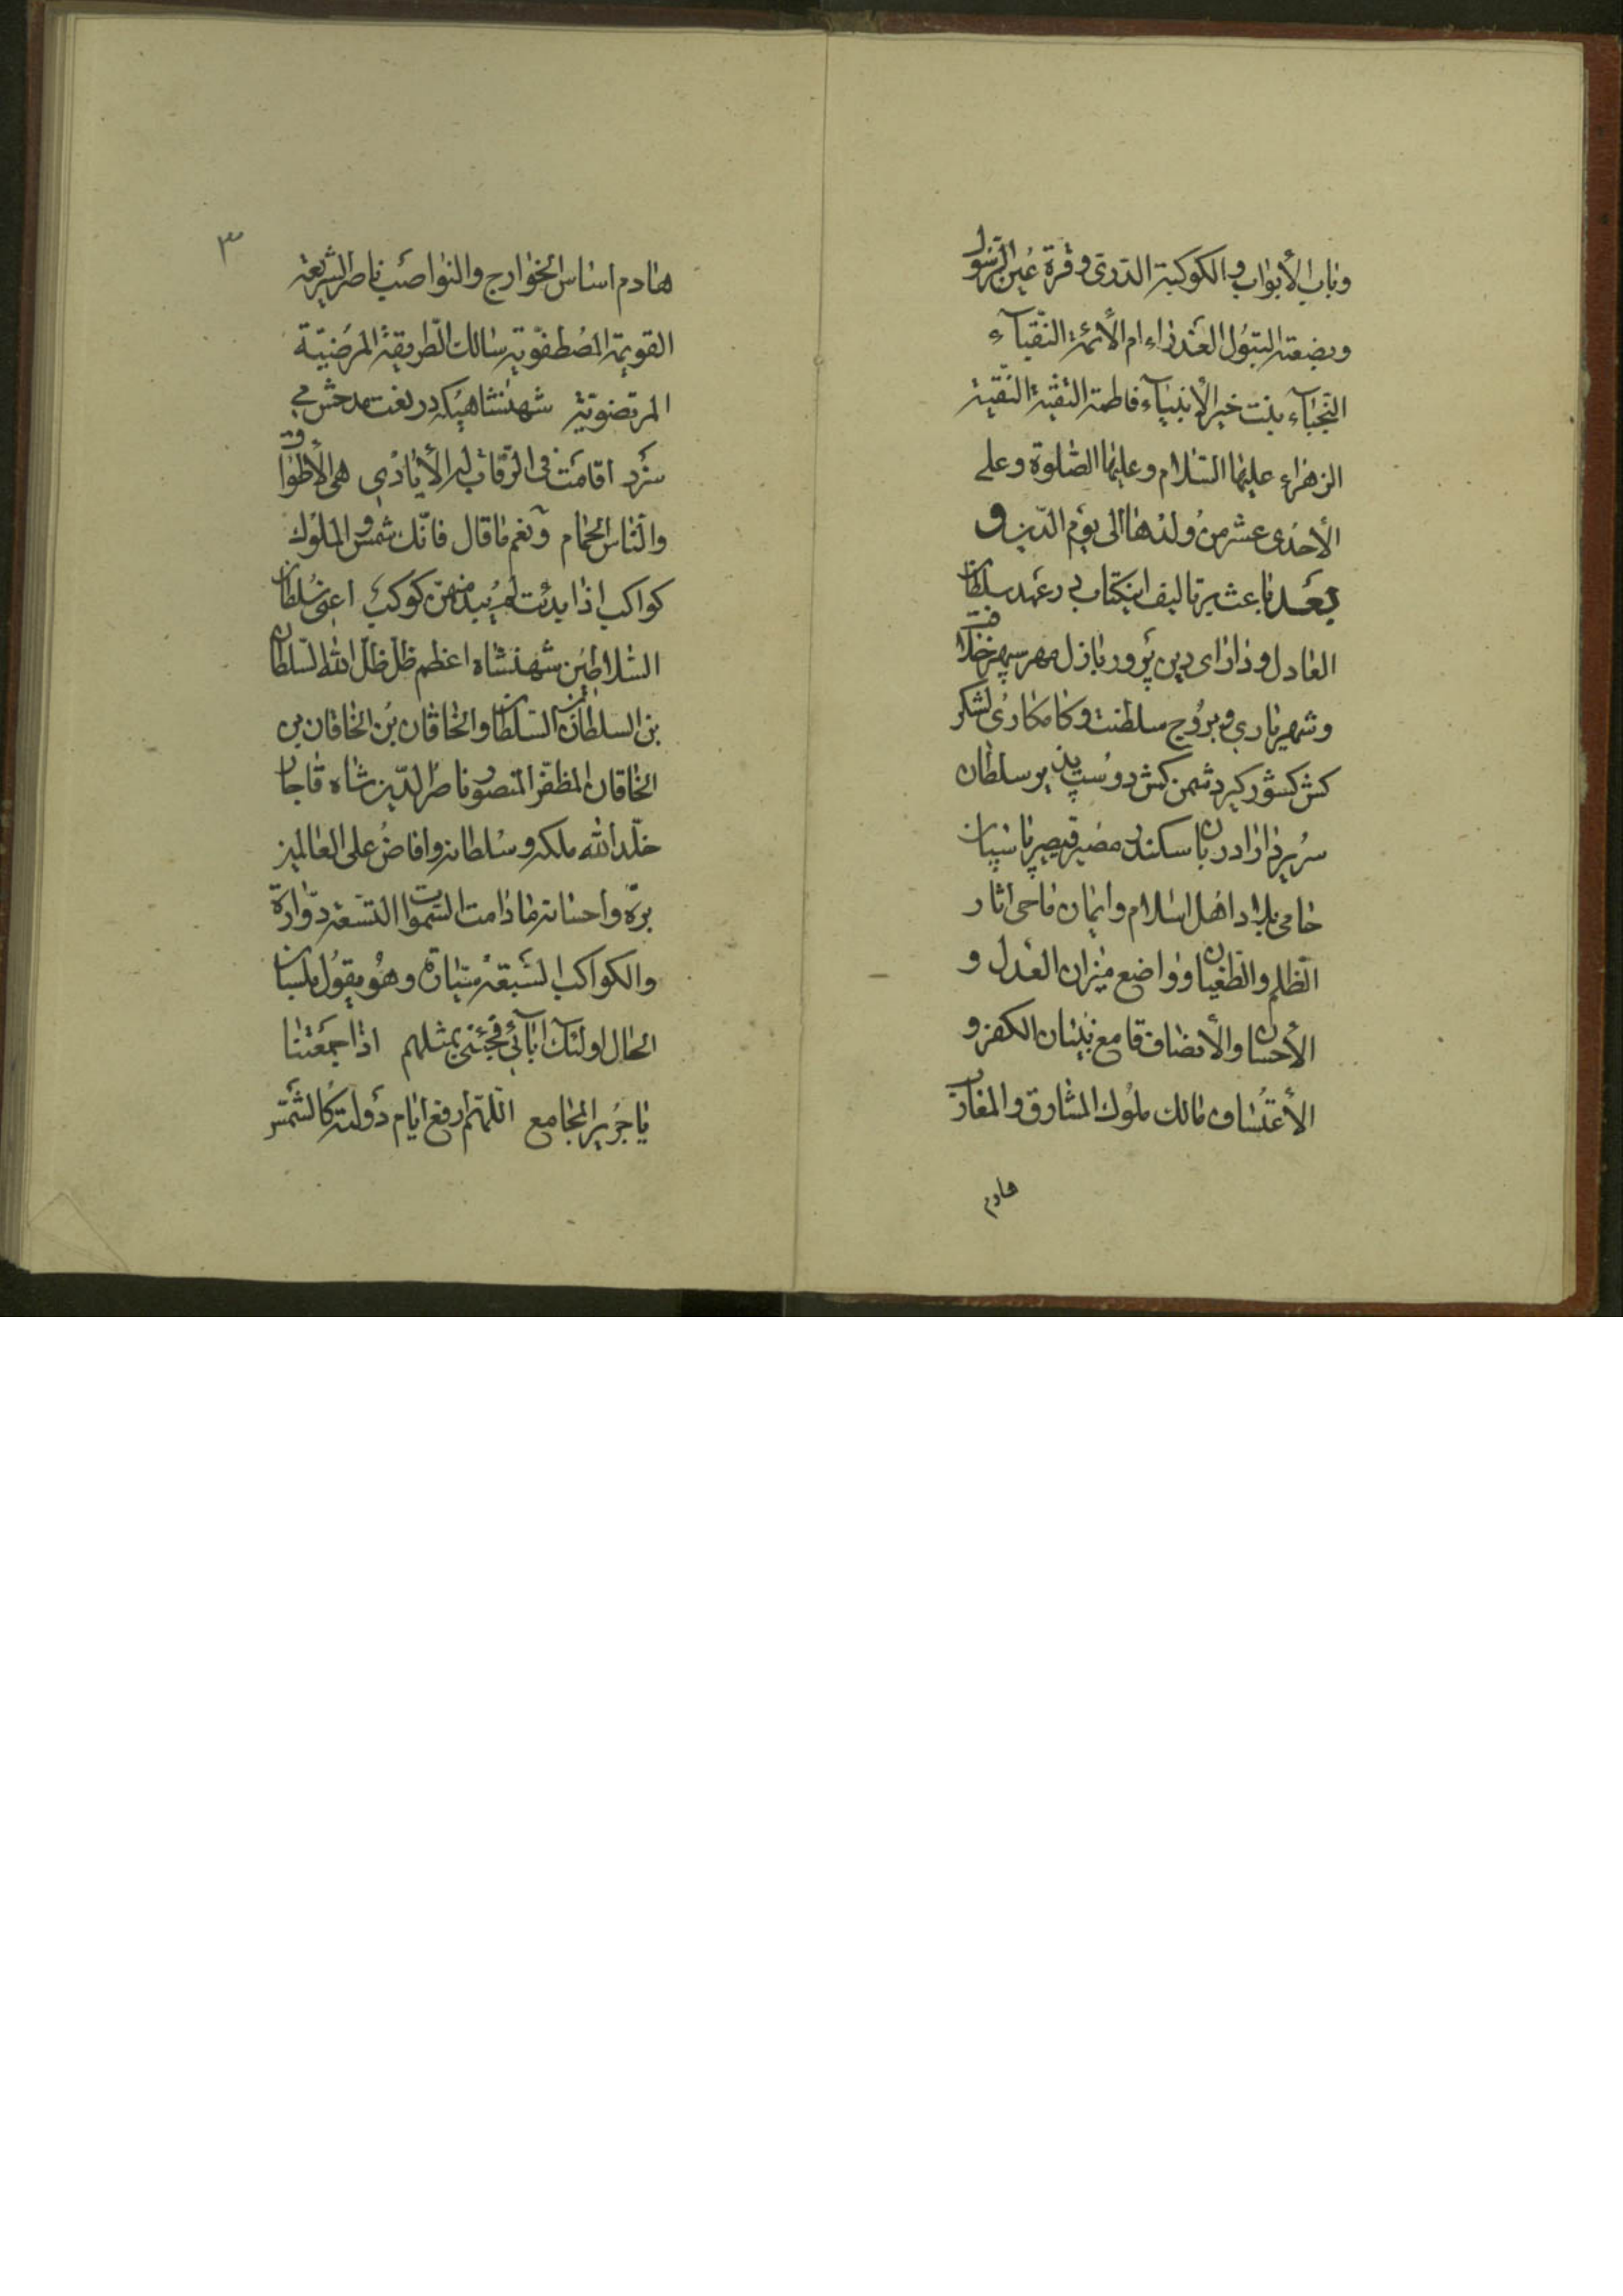 وباب الأبواب والكوكبة الدّرّی وقرة عین الرّسول
وبضعته البتول العذراء ام الأئمّة النّقبآء
النّجبآء بنت خیر الأنبیآء فاطمة التقیة النّقیة
الزهراء علیها السّلام وعلیها الصّلوة وعلی
الأحدی عشر من ولدها الی یوم الدّین و
بعد باعث بر تالیف اینکتاب در عهد سلطان
العادل و دارای دین پرور باذل مهر سپهر خلافت
وشهریاری و بروج سلطنت و کامکاری لشکر
کش کشور کیر دشمن کش دوست پذیر سلطان
سریر دارا دربان سکندر مضیر قیصر پاسبان
حامی بلاد اهل اسلام وایمان ماحی اثار
الظّلم والطّغیان و واضع میزان العدل و
الأحسان والأنصاف قامع بنیان الکفر و
الأعتساف مالك ملوك المشارق والمغارب
هادم
۳
هادم اساس الخوارج والنواصب ناصر الشریعة
القویمة المصطفویه سالك الطّریقة المرضیّة
المرتضویّة شهنشاهیکه در نعت مدحش می
سزد اقامت فی الرّقاب له الأیادی هی الأطواق
والنّاس الحمام ونعم ما قال فانّك شمس والملوك
كواکب اذا بدت لم یبد منهنّ کوکب اعنی سلطان
السّلاطین شهنشاه اعظم ظل ظلّ الله السّلطان
بن السلطان بن السّلطان والخاقان بن الخاقان بن
الخاقان المظفّر المنصور ناصر الدّین شاه قاجار
خلّد الله ملکه وسلطانه وافاض علی العالمین
برّه واحسانه مادامت السّموات التسعة دوّارة
والکواکب السّبعة سیّارة وهو یقول بلسان
الحال اولئك ابآئی فجئنی بمثلهم اذا جمعتنا
یا جریر المجامع اللّهمّ ارفع ایام دولته کالشّمس